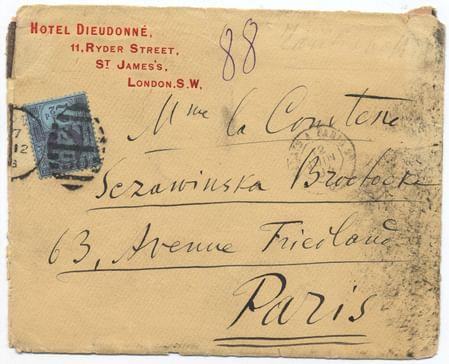 HOTEL DIEUDONNÉ,
11, RYDER STREET,
ST JAMES'S,
LONDON. S.W.
88
Mme la Comtesse
Sczawinska Brochocka
63, Avenue Friedland
Paris